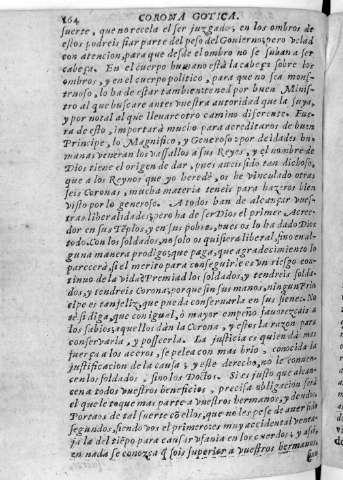 164 CORONA GOTICA.
suerte, que no recela el ser juzgado; en los ombros de
ellos podreis fiar parte del peso del Gouierno, pero velad
con atencion, para que desde el ombro no se suban a ser
cabeça. En el cuerpo humano està la cabeça sobre los
ombros, y en el cuerpo politico, para que no sea mons-
truoso, lo ha de estar tambien en el por buen Minis-
tro al que buscare antes vuestra autoridad que la suya,
y por no tal al que lleuare otro camino diferente. Fue-
ra de esto, importarà mucho para acreditaros de buen
Principe, lo Magnifico, y Generoso: por deidades hu-
manas veneran los vassallos a sus Reyes, y el nombre de
Dios tiene el origen de dar, pues aueis sido tan dichoso,
que a los Reynos que yo heredè, os he vinculado otras
seis Coronas, mucha materia teneis para hazeros bien
visto por lo generoso. A todos han de alcançar vues-
tras liberalidades; pero ha de ser Dios el primer Acree-
dor en sus Tēplos, y en sus pobres, pues os lo ha dado Dios
todo. Con los soldados, no solo os quisiera liberal, sino en al-
guna manera prodigo; que paga, que agradecimiento lo
parecerà, si el merito para conseguirle es un riesgo con-
tinuo de la vida? Premiad los soldados, y tendreis solda-
dos, y tendreis Corona; porque sin sus manos, ningun Prin
cipe es tan feliz, que pueda conseruarla en sus sienes. No
sè si diga, que con igual, ò mayor empeño fauorezcais a
los sabios, aquellos dàn la Corona, y estos la razon para
conseruarla, y posseerla. La justicia es quien dà mas
fuerça a los aceros, se pelea con mas brio, conocida la
justificacion de la causa; y este derecho, no le conuen-
cen los soldados, sino los Doctos. Si es justo que alcan-
cen a todos vuestros beneficios, precisa obligacion serà
el que le toque mas parte a vuestros hermanos, y deudos.
Portaos de tal suerte cō ellos, que no les pese de auer sido
segundos, siendo vos el primero: es muy accidental venta-
ja la del tiēpo para causar vfania en los cuerdos, y assi,
en nada se conozca q̃ sois superior a vuestros hermanos,